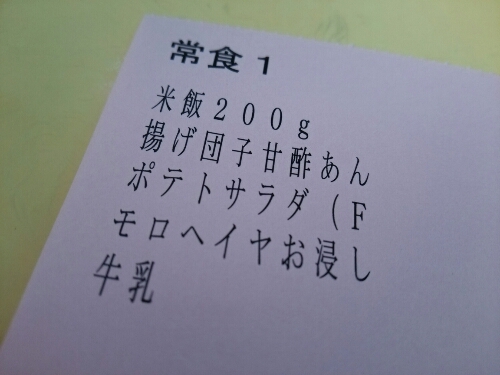 常食1
米飯200g
揚げ団子甘酢あん
ポテトサラダ(F
モロヘイヤお浸し
牛乳